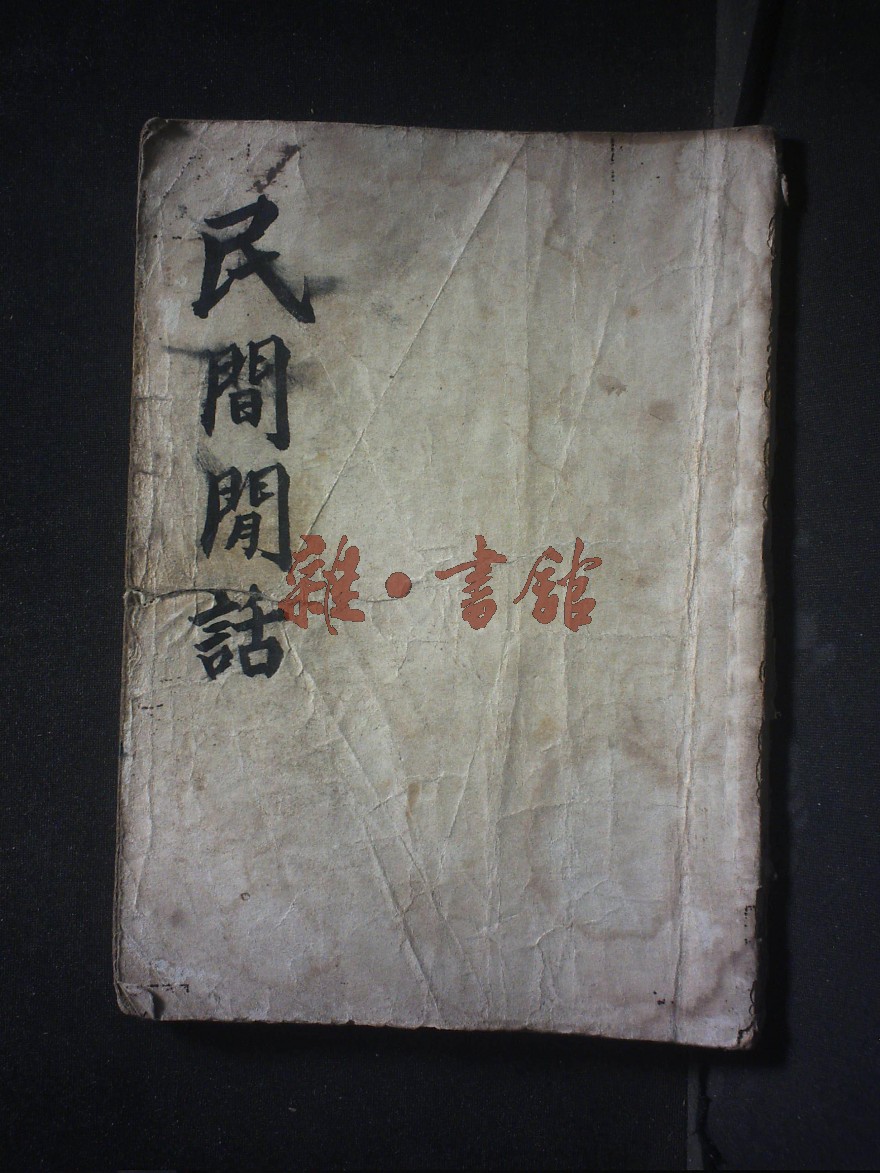 民間閒話
雜·書館